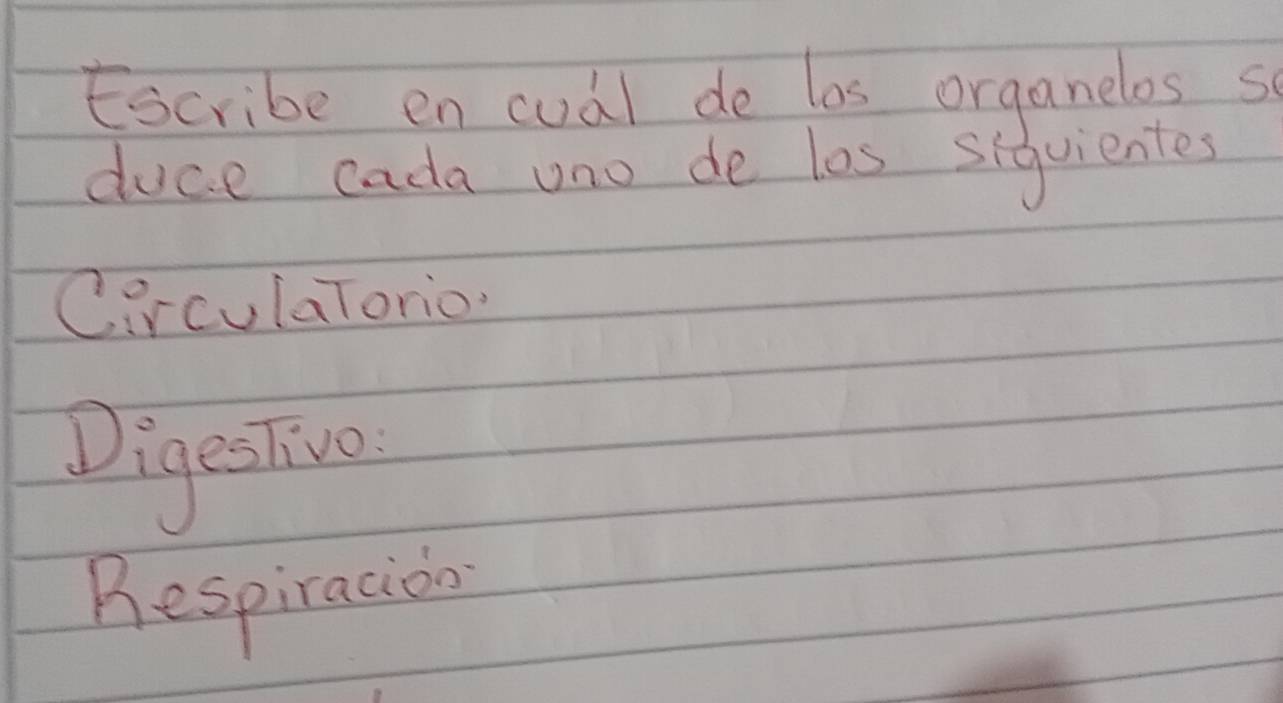 Escribe en cuál de los organelos se
duce cada uno de los siguientes
Circulatorio:
Digestivo:
Respiración: